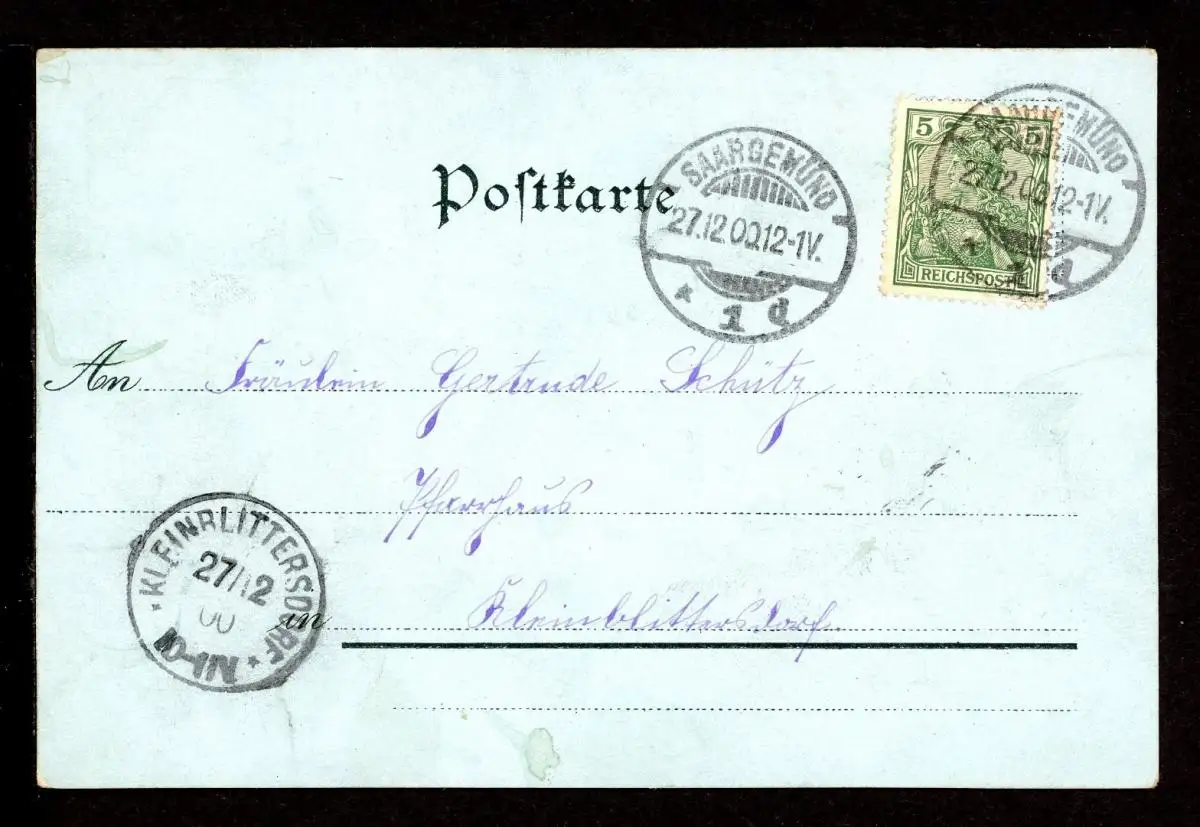 Postkarte
SAARGEMÜND
27.12.00.12-1V.
* 1 d
5 5
REICHSPOST
SAARGEMÜND
27.12.00.12-1V.
* 1 d
An Fräulein Gertrude Schütz
Pfarrhaus
KLEINBLITTERSDORF
27/12
00
10-11V
in Kleinblittersdorf.